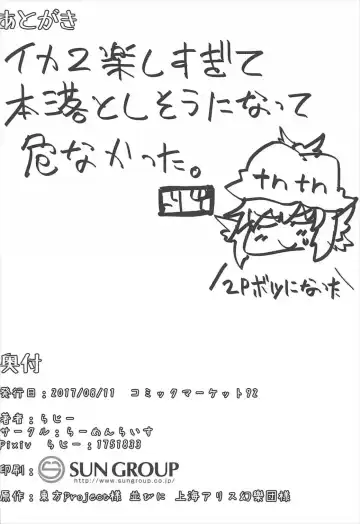 あとがき
イカ2楽しすぎて
本落としそうになって
危なかった。
tntn
2Pボツになった
奥付
発行日：2017/08/11 コミックマーケット92
著者：らヒー
サークル：らーめんらいす
Pixiv らヒー：1751833
印刷：SUN GROUP
http://www.sungroup.co.jp/
原作：東方Project様 並びに 上海アリス幻樂団様